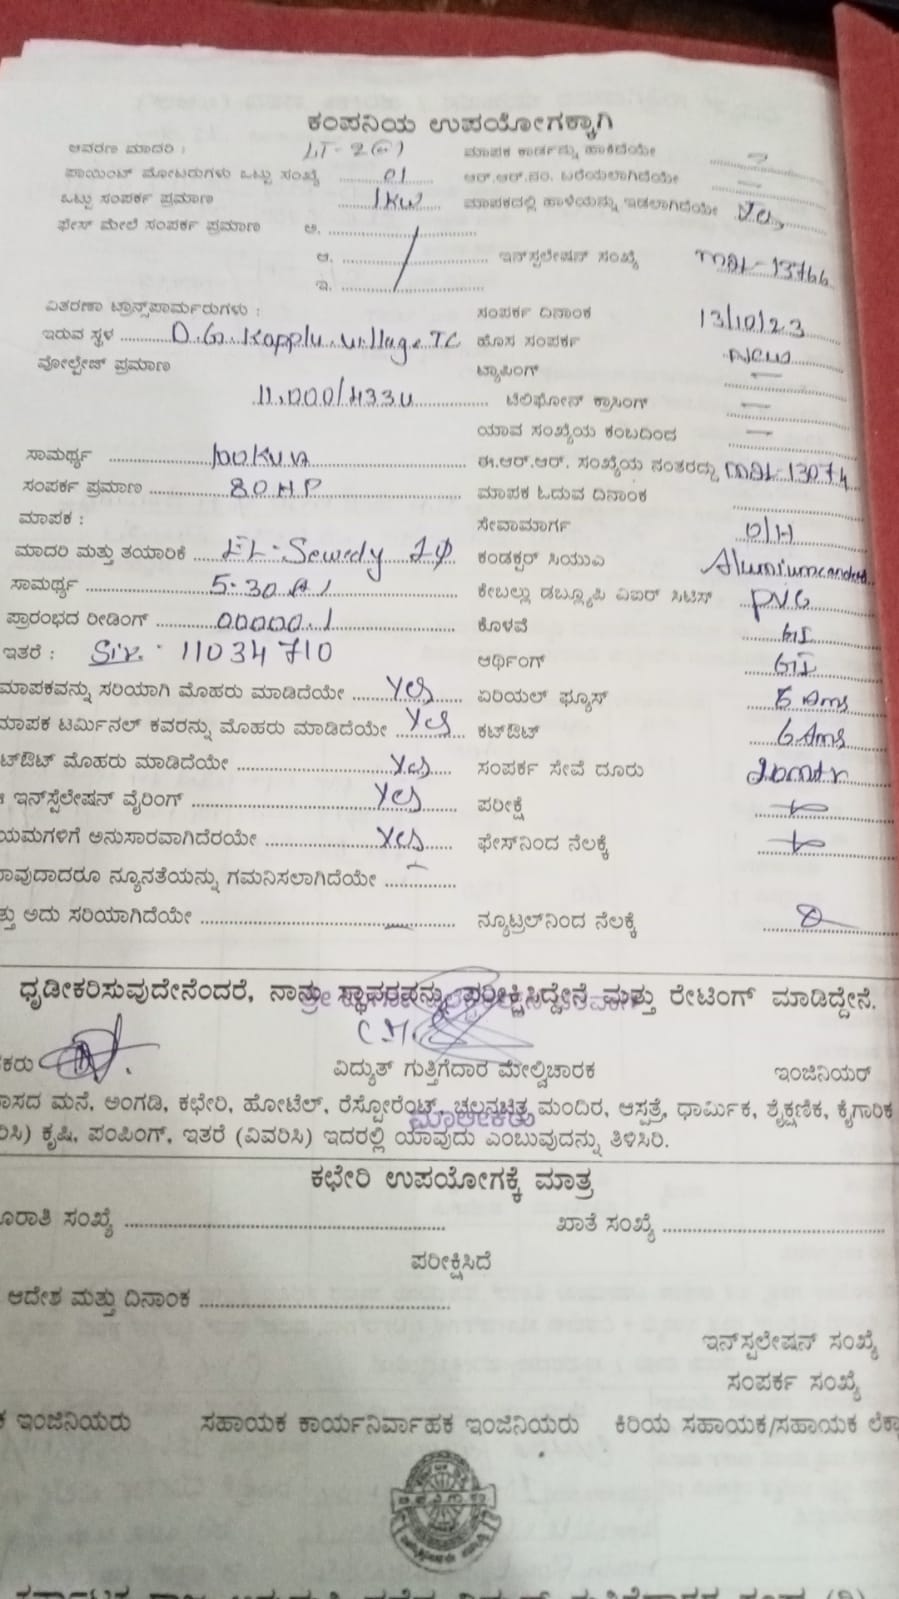 ಕಂಪನಿಯ ಉಪಯೋಗಕ್ಕಾಗಿ
ಆವರಣ ಮಾದರಿ : LT-2(a) ಮಾಪಕ ಕಾರ್ಡನ್ನು ಹಾಕಿದೆಯೇ
ಪಾಯಿಂಟ್ ಮೋಟರುಗಳು ಒಟ್ಟು ಸಂಖ್ಯೆ 01 ಆರ್.ಆರ್.ನಂ. ಬರೆಯಲಾಗಿದೆಯೇ —
ಒಟ್ಟು ಸಂಪರ್ಕ ಪ್ರಮಾಣ 1KW ಮಾಪಕದಲ್ಲಿ ಹಾಳೆಯನ್ನು ಇಡಲಾಗಿದೆಯೇ Yes
ಫೇಸ್ ಮೇಲೆ ಸಂಪರ್ಕ ಪ್ರಮಾಣ ಅ.
ಆ. ಇನ್‌ಸ್ಟಲೇಷನ್ ಸಂಖ್ಯೆ MBL-13766
ಇ.
ವಿತರಣಾ ಟ್ರಾನ್ಸ್‌ಫಾರ್ಮರುಗಳು : ಸಂಪರ್ಕ ದಿನಾಂಕ 13/10/23
ಇರುವ ಸ್ಥಳ D.G.Kopplu village TC ಹೊಸ ಸಂಪರ್ಕ New
ವೋಲ್ಟೇಜ್ ಪ್ರಮಾಣ ಟ್ಯಾಪಿಂಗ್ —
11,000/433V ಟೆಲಿಫೋನ್ ಕ್ರಾಸಿಂಗ್ —
ಯಾವ ಸಂಖ್ಯೆಯ ಕಂಬದಿಂದ —
ಸಾಮರ್ಥ್ಯ 100KVA ಈ.ಆರ್.ಆರ್. ಸಂಖ್ಯೆಯ ನಂತರದ್ದು MBL-13074
ಸಂಪರ್ಕ ಪ್ರಮಾಣ 80HP ಮಾಪಕ ಓದುವ ದಿನಾಂಕ
ಮಾಪಕ : ಸೇವಾಮಾರ್ಗ O/H
ಮಾದರಿ ಮತ್ತು ತಯಾರಿಕೆ EL-Sewedy 1φ ಕಂಡಕ್ಟರ್ ಸಿಯುಎ
ಸಾಮರ್ಥ್ಯ 5-30A ಕೇಬಲ್ಲು ಡಬ್ಲ್ಯೂಪಿ ವಿಐಆರ್ ಸಿಟಿಸ್ PVC
ಪ್ರಾರಂಭದ ರೀಡಿಂಗ್ 00000.1 ಕೊಳವೆ GI
ಇತರೆ : Sr. 11034710 ಆರ್ಥಿಂಗ್ GI
ಮಾಪಕವನ್ನು ಸರಿಯಾಗಿ ಮೊಹರು ಮಾಡಿದೆಯೇ Yes ಏರಿಯಲ್ ಫ್ಯೂಸ್ 6 Ams
ಮಾಪಕ ಟರ್ಮಿನಲ್ ಕವರನ್ನು ಮೊಹರು ಮಾಡಿದೆಯೇ Yes ಕಟ್‌ಔಟ್ 6 Ams
ಟ್‌ಔಟ್ ಮೊಹರು ಮಾಡಿದೆಯೇ Yes ಸಂಪರ್ಕ ಸೇವೆ ದೂರು 20mtr
ಇನ್‌ಸ್ಟೆಲೇಷನ್ ವೈರಿಂಗ್ Yes ಪರೀಕ್ಷೆ
ಯಮಗಳಿಗೆ ಅನುಸಾರವಾಗಿದೆರಯೇ Yes ಫೇಸ್‌ನಿಂದ ನೆಲಕ್ಕೆ
ಾವುದಾದರೂ ನ್ಯೂನತೆಯನ್ನು ಗಮನಿಸಲಾಗಿದೆಯೇ —
ತ್ತು ಅದು ಸರಿಯಾಗಿದೆಯೇ — ನ್ಯೂಟ್ರಲ್‌ನಿಂದ ನೆಲಕ್ಕೆ
ಧೃಡೀಕರಿಸುವುದೇನೆಂದರೆ, ನಾನು ಸ್ಥಾವರವನ್ನು ಪರೀಕ್ಷಿಸಿದ್ದೇನೆ ಮತ್ತು ರೇಟಿಂಗ್ ಮಾಡಿದ್ದೇನೆ.
ಕರು ವಿದ್ಯುತ್ ಗುತ್ತಿಗೆದಾರ ಮೇಲ್ವಿಚಾರಕ ಇಂಜಿನಿಯರ್
ಾಸದ ಮನೆ, ಅಂಗಡಿ, ಕಛೇರಿ, ಹೋಟೆಲ್, ರೆಸ್ಟೋರೆಂಟ್, ಚಲನಚಿತ್ರ ಮಂದಿರ, ಆಸ್ಪತ್ರೆ, ಧಾರ್ಮಿಕ, ಶೈಕ್ಷಣಿಕ, ಕೈಗಾರಿಕ
ಮಾಲೀಕರು
ರಿಸಿ) ಕೃಷಿ, ಪಂಪಿಂಗ್, ಇತರೆ (ವಿವರಿಸಿ) ಇದರಲ್ಲಿ ಯಾವುದು ಎಂಬುವುದನ್ನು ತಿಳಿಸಿರಿ.
ಕಛೇರಿ ಉಪಯೋಗಕ್ಕೆ ಮಾತ್ರ
ೂರಾತಿ ಸಂಖ್ಯೆ ಖಾತೆ ಸಂಖ್ಯೆ
ಪರೀಕ್ಷಿಸಿದೆ
ಆದೇಶ ಮತ್ತು ದಿನಾಂಕ
ಇನ್‌ಸ್ಟಲೇಷನ್ ಸಂಖ್ಯೆ
ಸಂಪರ್ಕ ಸಂಖ್ಯೆ
ಕ ಇಂಜಿನಿಯರು ಸಹಾಯಕ ಕಾರ್ಯನಿರ್ವಾಹಕ ಇಂಜಿನಿಯರು ಕಿರಿಯ ಸಹಾಯಕ/ಸಹಾಯಕ ಲೆಕ್ಕ